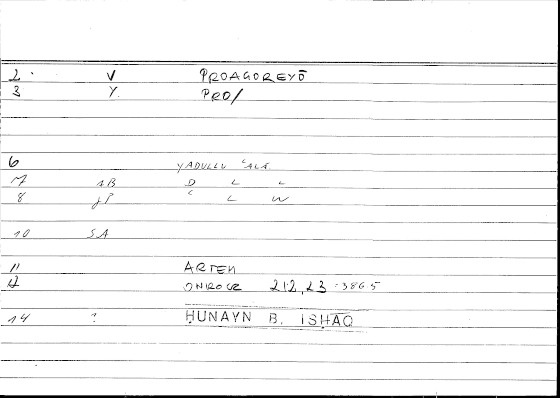 2 V PROAGOREYŌ
3 Y. PRO/
6 YADULLU ʿALĀ
7 AB D L L
8 JP L W
10 SA
11 ARTEM
12 ONIROCR 212,23 = 386 5
14 ? ḤUNAYN B. ISḤAQ